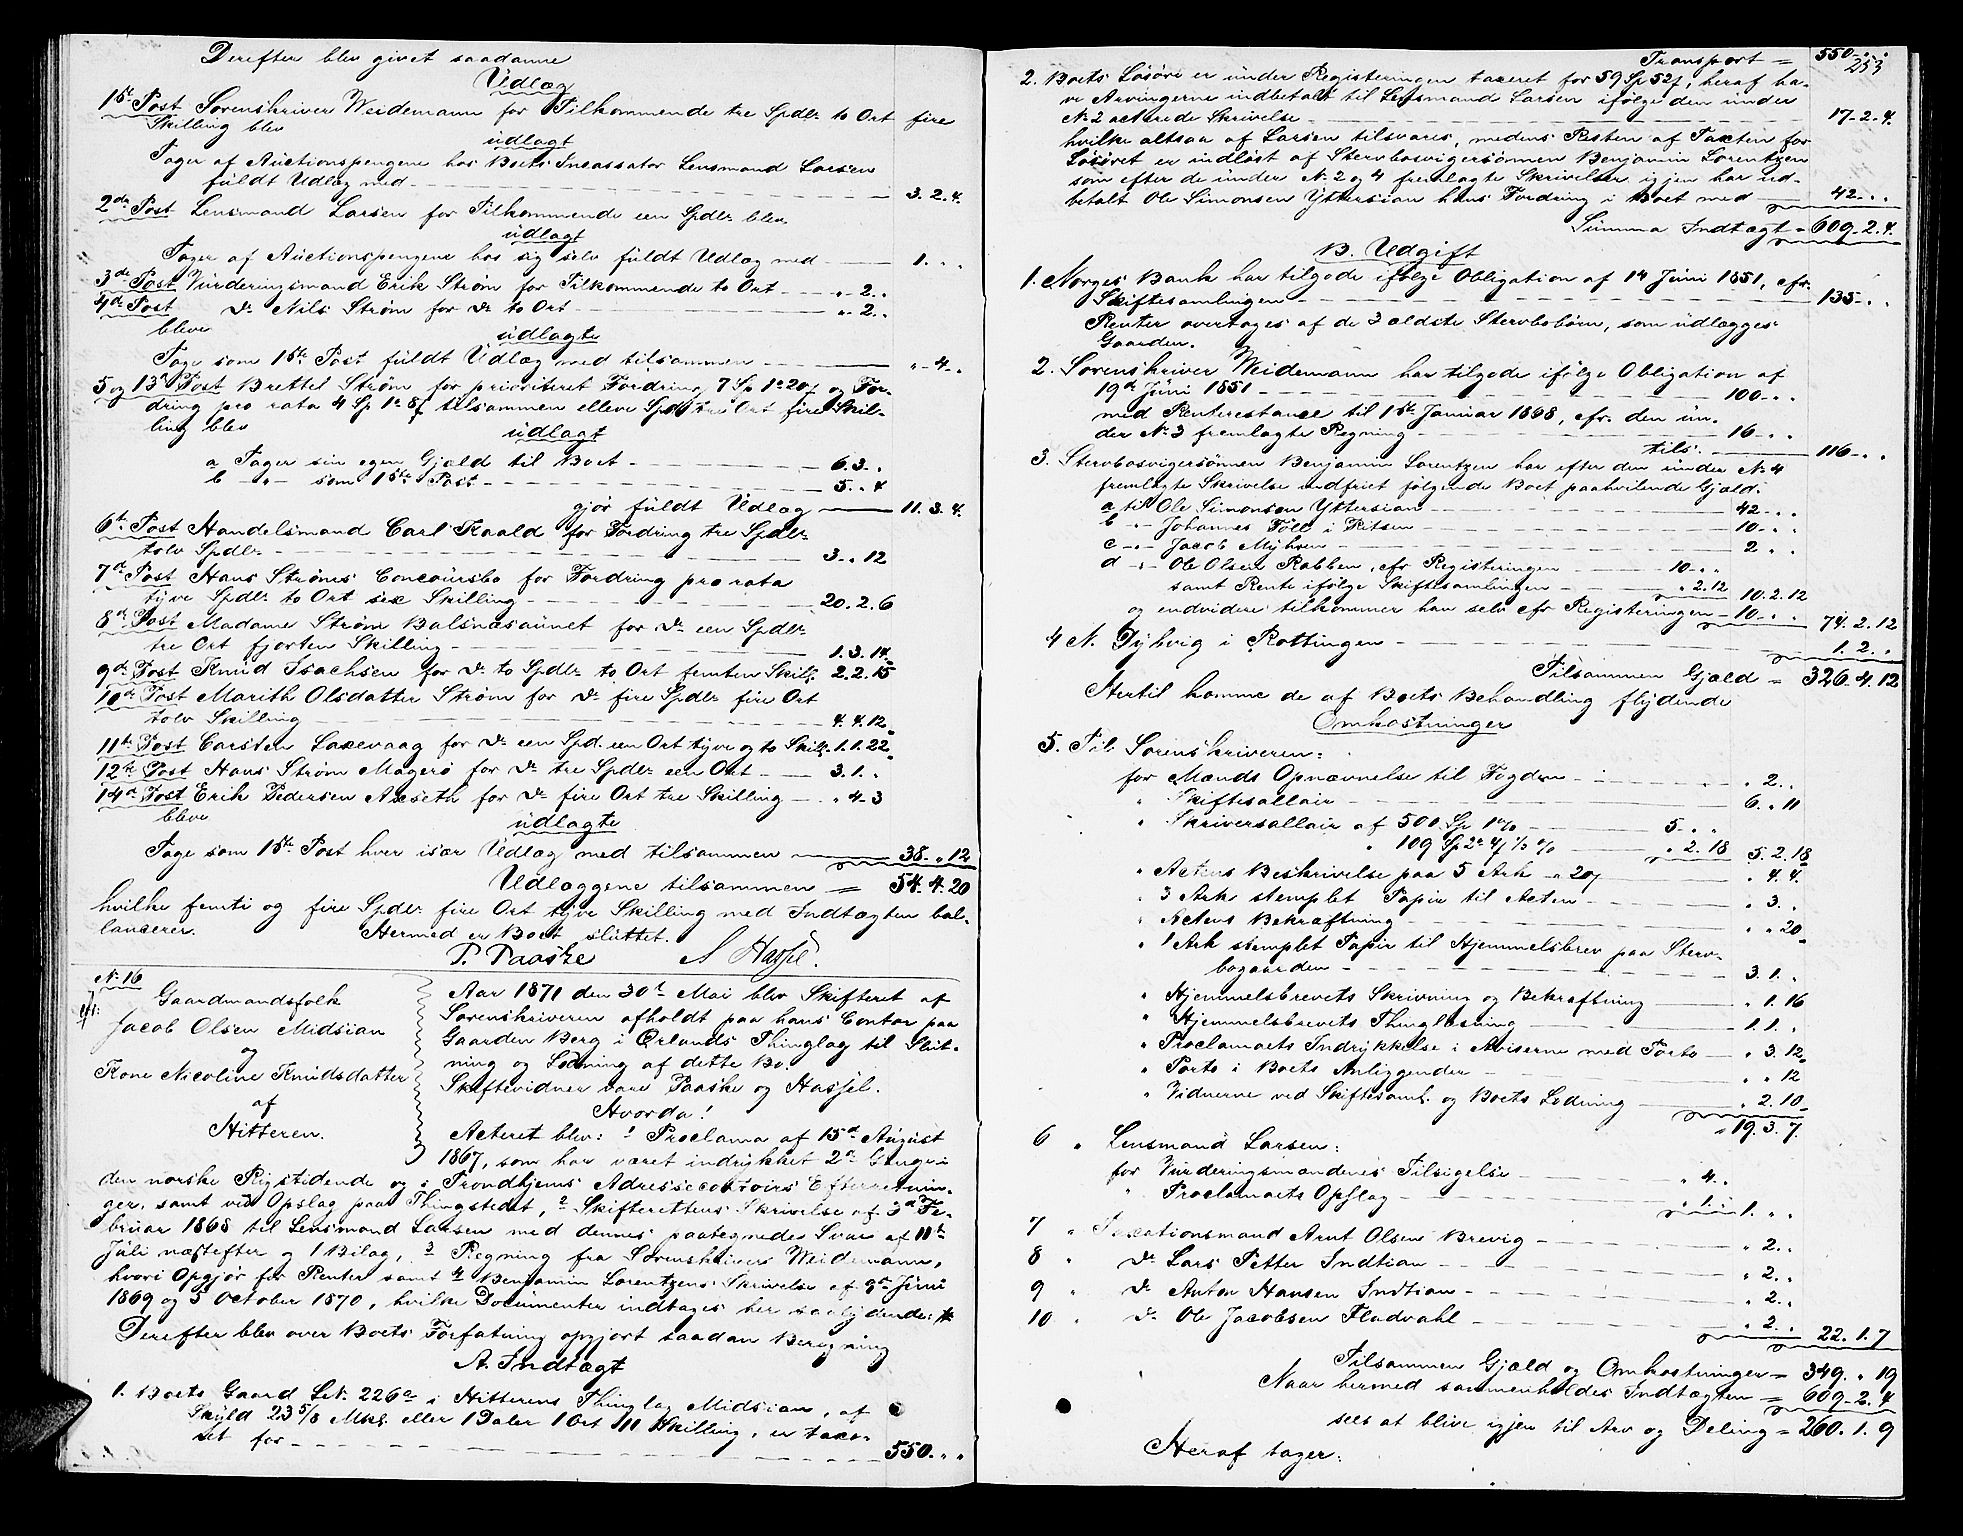 Derefter blev givet saadanne
Udlæg
1ste Post Sorenskriver Weidemann for Tilkommende tre Spdlr to Ort fire
Skilling blev
udlagt
Tager af Auctionspengene hos Boets Incassator Lensmand Larsen
fuldt Udlæg med 3. 2. 4.
2den Post Lensmand Larsen for Tilkommende een Spdlr blev
udlagt
Tager af Auctionspengene hos sig selv fuldt Udlæg med 1. „ „
3die Post Vurderingsmand Erik Strøm for Tilkommende to Ort „ 2. „
4de Post do Nils Strøm for do to Ort „ 2. „
bleve
udlagte
Tage som 1ste Post fuldt Udlæg med tilsammen „ 4. „
5 og 13de Post Brettel Strøm for prioriteret Fordring 7 Sp 1 ort 20 s og For-
dring pro rata 4 Sp 1 ort 8 s tilsammen elleve Spdlr tre Ort fire Skil-
ling blev
udlagt
a Tager sin egen Gjæld til Boet 6. 3. „
b „ som 1ste Post 5. „ 4
gjør fuldt Udlæg 11. 3. 4.
6te Post Handelsmand Carl Kaald for Fordring tre Spdlr
tolv Spdlr 3. „ 12
7de Post Hans Strøms Concoursbo for Fordring pro rata
tyve Spdlr to Ort sex Skilling 20. 2. 6
8de Post Madame Strøm Balsnæsaunet for do een Spdlr
tre Ort fjorten Skilling 1. 3. 14
9de Post Knud Isachsen for do to Spdlr to Ort femten Skill. 2. 2. 15
10de Post Marith Olsdatter Strøm for do fire Spdlr fire Ort
tolv Skilling 4. 4. 12
11te Post Carsten Laxevaag for do een Spd. een Ort tyve og to Skill. 1. 1. 22
12te Post Hans Strøm Magerø for do tre Spdlr een Ort 3. 1. „
14de Post Erik Pedersen Axseth for do fire Ort tre Skilling „ 4. 3
bleve
udlagte
Tage som 1ste Post hver især Udlæg med tilsammen 38. „ 12
Udlæggene tilsammen = 54. 4. 20
hvilke femti og fire Spdlr fire Ort tyve Skilling med Indtægten bal-
lancerer. Hermed er Boet sluttet.
P. Paaske A Hassel.
No 16
Gaardmandsfolk
Jacob Olsen Midsian
og
Kone Nicoline Knudsdatter
af
Hitteren.
Aar 1871 den 30te Mai blev Skifteret af
Sorenskriveren afholdt paa hans Contor paa
Gaarden Berg i Ørlands Thinglag til Slut-
ning og Lodning af dette Bo.
Skiftevidner vare Paaske og Hassel.
Hvorda!
Acteret blev: 1 Proclama af 15de August
1867, som har været indrykket 2de Gange i
den norske Rigstidende og i Trondhjems Adressecontoirs Efterretnin-
ger, samt ved Opslag paa Thingstedet, 2 Skifterettens Skrivelse af 3de Fe-
bruar 1868 til Lensmand Larsen med dennes paategnede Svar af 11te
Juli næstefter og 1 Bilag, 3 Regning fra Sorenskriver Weidemann,
hvori Opgjør for Renter samt 4 Benjamin Lorentzens Skrivelse af 9de Juni
1869 og 5 October 1870, hvilke Documenter indtages her saalydende:
Derefter blev over Boets Forfatning opgjort saadan Beregning
A. Indtægt
1. Boets Gaard L.No. 226a i Hitterens Thinglag Midsian, af
Skyld 23 5/8 Mkl. eller 1 Daler 1 Ort 11 Skilling, er taxe-
ret for 550. „ „
253
Transport = 550 „ „
2. Boets Løsøre er under Registeringen taxeret for 59 Sp 52 s, heraf ha-
ve Arvingerne indbetalt til Lensmand Larsen ifølge den under
No 2 acterede Skrivelse 17. 2. 4.
hvilke altsaa af Larsen tilsvares, medens Resten af Taxten for
Løsøret er indløst af Stervbosvigersønnen Benjamin Lorentzen
som efter de under No 2 og 4 fremlagte Skrivelser igjen har ud-
betalt Ole Simonsen Yttersian hans Fordring i Boet med 42 „ „
Summa Indtægt = 609. 2. 4.
B. Udgift
1. Norges Bank har tilgode ifølge Obligation af 14 Juni 1851, cfr.
Skiftesamlingen 135 „ „
Renter overtages af de 3 ældste Stervbobørn, som udlægges
Gaarden.
2. Sorenskriver Weidemann har tilgode ifølge Obligation af
19de Juni 1851 100 „ „
med Renterestance til 1ste Januar 1868, cfr. den un-
der No 3 fremlagte Regning 16 „ „
tils. 116 „ „
3. Stervbosvigersønnen Benjamin Lorentzen har efter den under No 4
fremlagte Skrivelse indfriet følgende Boet paahvilende Gjæld:
a til Ole Simonsen Yttersian 42 „ „
b „ Johannes Foll i Fitsen 10 „ „
c „ Jacob Myhren 2 „ „
d „ Ole Olsen Rabben, cfr Registeringen 10 „ „
samt Rente ifølge Skiftesamlingen „ 2. 12 10. 2. 12
og endvidere tilkommer han selv cfr Registeringen 10 „ „ 74. 2. 12
4 N. Dyhvig i Rottingen 1. 2. „
Tilsammen Gjæld = 326. 4. 12
Hertil komme de af Boets Behandling flydende
Omkostninger
5. Til Sorenskriveren:
for Mænds Opnævnelse til Fogden „ 2. „
„ Skiftesallair 6. „ 11
„ Skriversallair af 500 Sp 1% 5. „ „
„ 109 Sp 2 ort 4 s ½% „ 2. 18 5. 2. 18
„ Actens Beskrivelse paa 5 Ark a 20 s „ 4. 4.
„ 3 Ark stemplet Papir til Acten „ 3. „
„ Actens Bekræftning „ „ 20
„ 1 Ark stemplet Papir til Hjemmelsbrev paa Sterv-
bogaarden 3. 1. „
„ Hjemmelsbrevets Skrivning og Bekræftning „ 1. 16
„ Hjemmelsbrevets Thinglæsning 1. 1. „
„ Proclamaets Indrykkelse i Aviserne med Porto „ 3. 12
„ Porto i Boets Anliggender „ „ 12
„ Vidnerne ved Skiftesaml. og Boets Lodning „ 2. 10
19. 3. 7.
6 „ Lensmand Larsen:
for Vurderingsmændenes Tilsigelse „ 4. „
„ Proclamaets Opslag „ 1. „ 1. „ „
7 „ Taxationsmand Arnt Olsen Brevig „ 2. „
8 „ do Lars Petter Indtian „ 2. „
9 „ do Anton Hansen Indtian „ 2. „
10 „ do Ole Jacobsen Fladvahl „ 2. „ 22. 1. 7
Tilsammen Gjæld og Omkostninger = 349. „ 19
Naar hermed sammenholdes Indtægten = 609. 2. 4
sees at blive igjen til Arv og Deling = 260. 1. 9
Heraf tager: